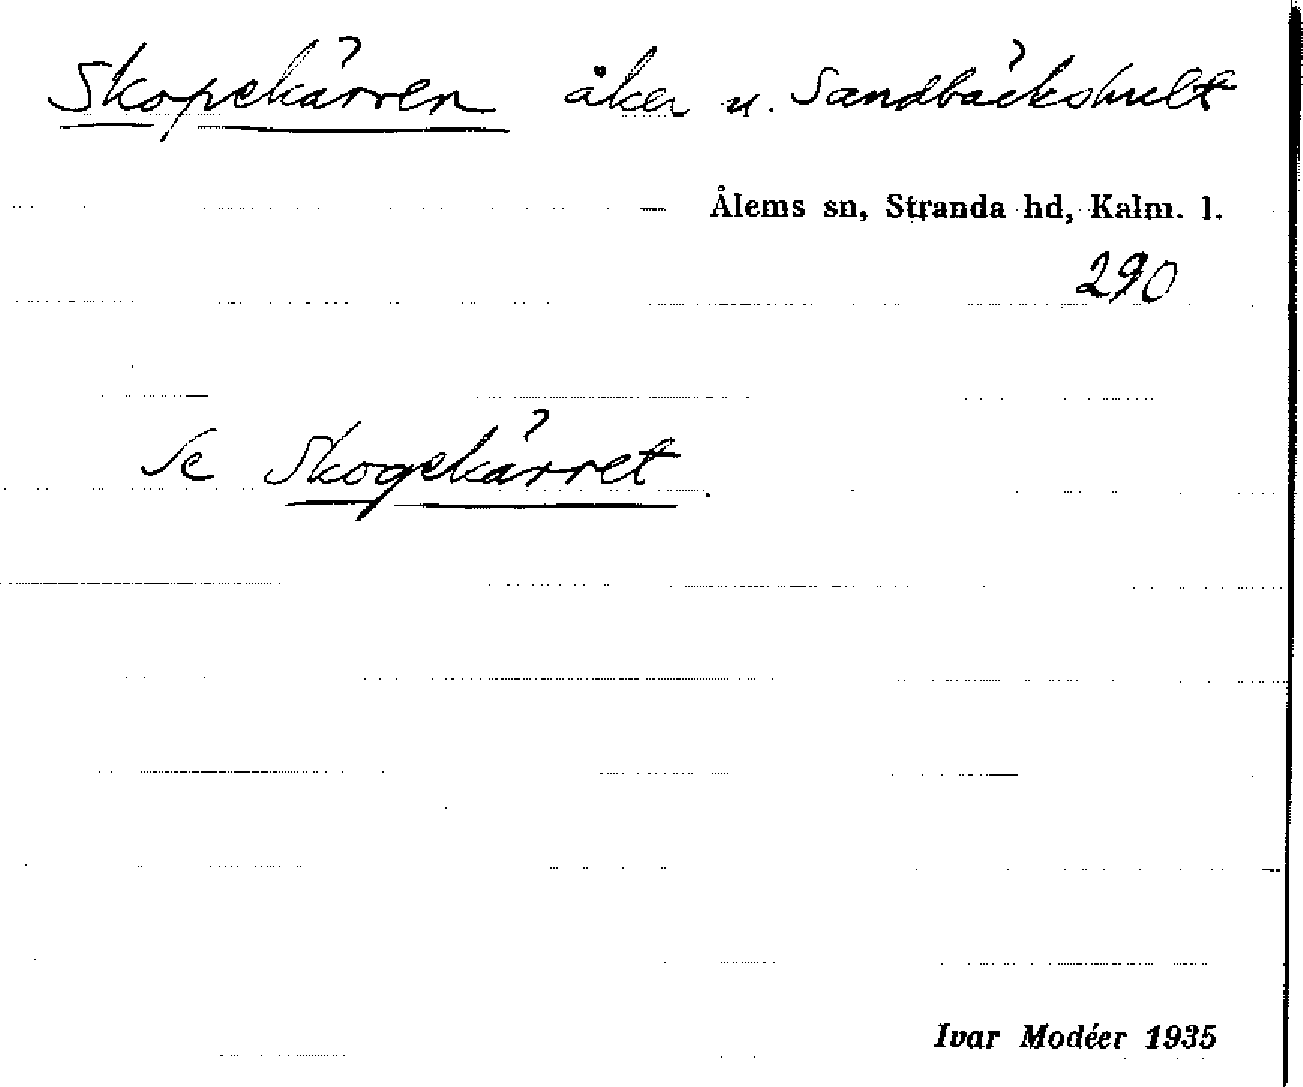 Skopekärren åker u. Sandbäckshult
Ålems sn, Stranda hd, Kalm. l.
290
Se Skogekärret.
Ivar Modéer 1935